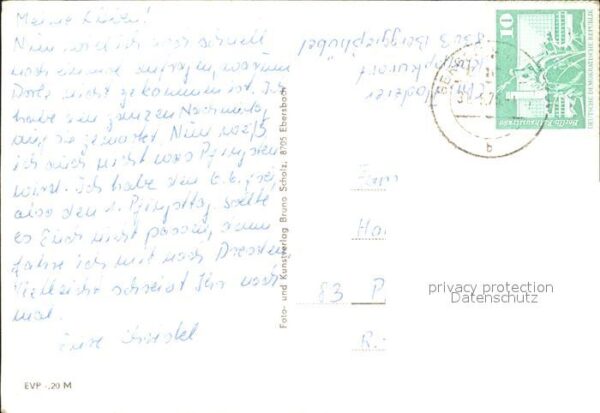 Meine Lieben!
Nun will ich noch schnell
noch einmal anfragen, warum
Doris nicht gekommen ist. Ich
habe den ganzen Nachmittag
auf sie gewartet. Nun weiß
ich auch nicht was Pfingsten
wird. Ich habe den 6.6. frei
also den 1. Pfingsttag sollte
es Euch nicht passen, dann
fahre ich mit nach Dresden.
Vielleicht schreibt Ihr noch
mal.
Eure Christel
EVP -.20 M
Foto- und Kunstverlag Bruno Scholz, 8705 Ebersbach
8303 Berggießhübel
Kneippkurort
10
DEUTSCHE DEMOKRATISCHE REPUBLIK
b
Fam
Ha
83 P
R.-
privacy protection
Datenschutz